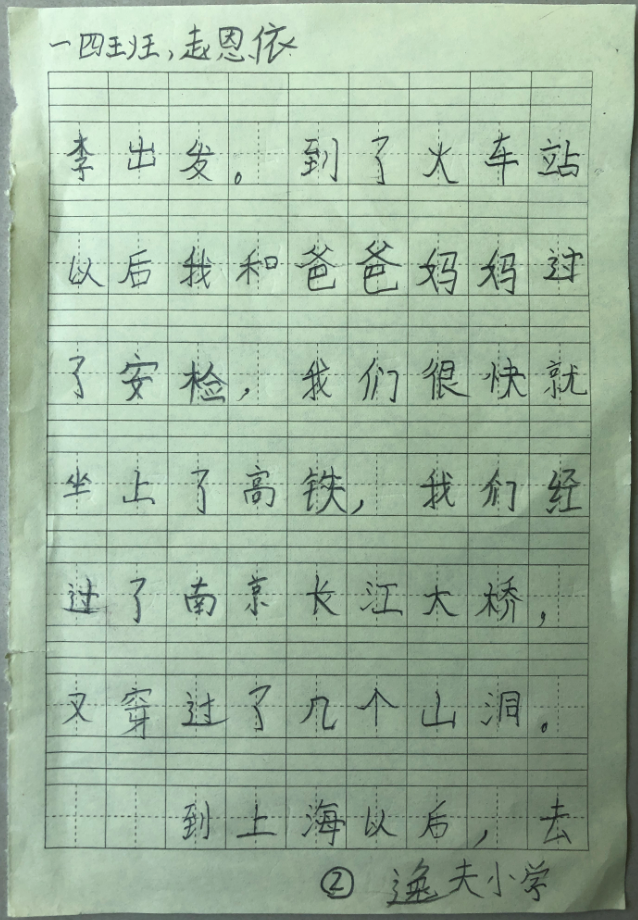 一四班, 赵恩依
李出发。到了火车站
以后我和爸爸妈妈过
了安检，我们很快就
坐上了高铁，我们经
过了南京长江大桥，
又穿过了几个山洞。
到上海以后，去
② 逸夫小学